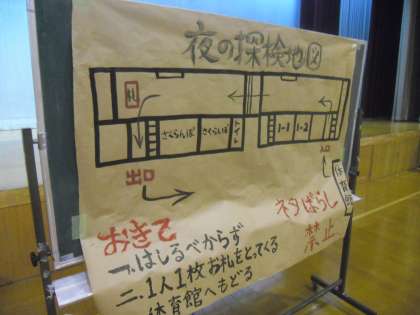 夜の探検地図
札
さくらんぼ
さくらんぼ
トイレ
1-1
1-2
出口
入口
体育館
おきて
一、はしるべからず
二、1人1枚お札をとってくる
体育館へもどる
ネタばらし
禁止